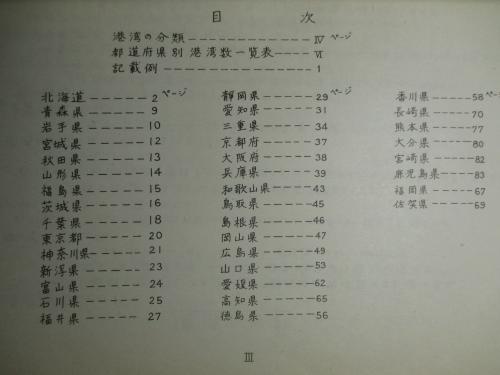 目 次
港湾の分類 ------ Ⅳ ページ
都道府県別 港湾数一覧表 ---- Ⅵ
記載例 -------- 1
北海道 ------ 2 ページ
青森県 ------ 9
岩手県 ------ 10
宮城県 ------ 12
秋田県 ------ 13
山形県 ------ 14
福島県 ------ 15
茨城県 ------ 16
千葉県 ------ 18
東京都 ------ 20
神奈川県 ----- 21
新潟県 ------ 23
富山県 ------ 24
石川県 ------ 25
福井県 ------ 27
静岡県 ------ 29 ページ
愛知県 ------ 31
三重県 ------ 34
京都府 ------ 37
大阪府 ------ 38
兵庫県 ------ 39
和歌山県 ----- 43
鳥取県 ------ 45
島根県 ------ 46
岡山県 ------ 47
広島県 ------ 49
山口県 ------ 53
愛媛県 ------ 62
高知県 ------ 65
徳島県 ------ 56
香川県 ----- 58 ページ
長崎県 ----- 70
熊本県 ----- 77
大分県 ----- 80
宮崎県 ----- 82
鹿児島県 ---- 83
福岡県 ----- 67
佐賀県 ----- 69
Ⅲ